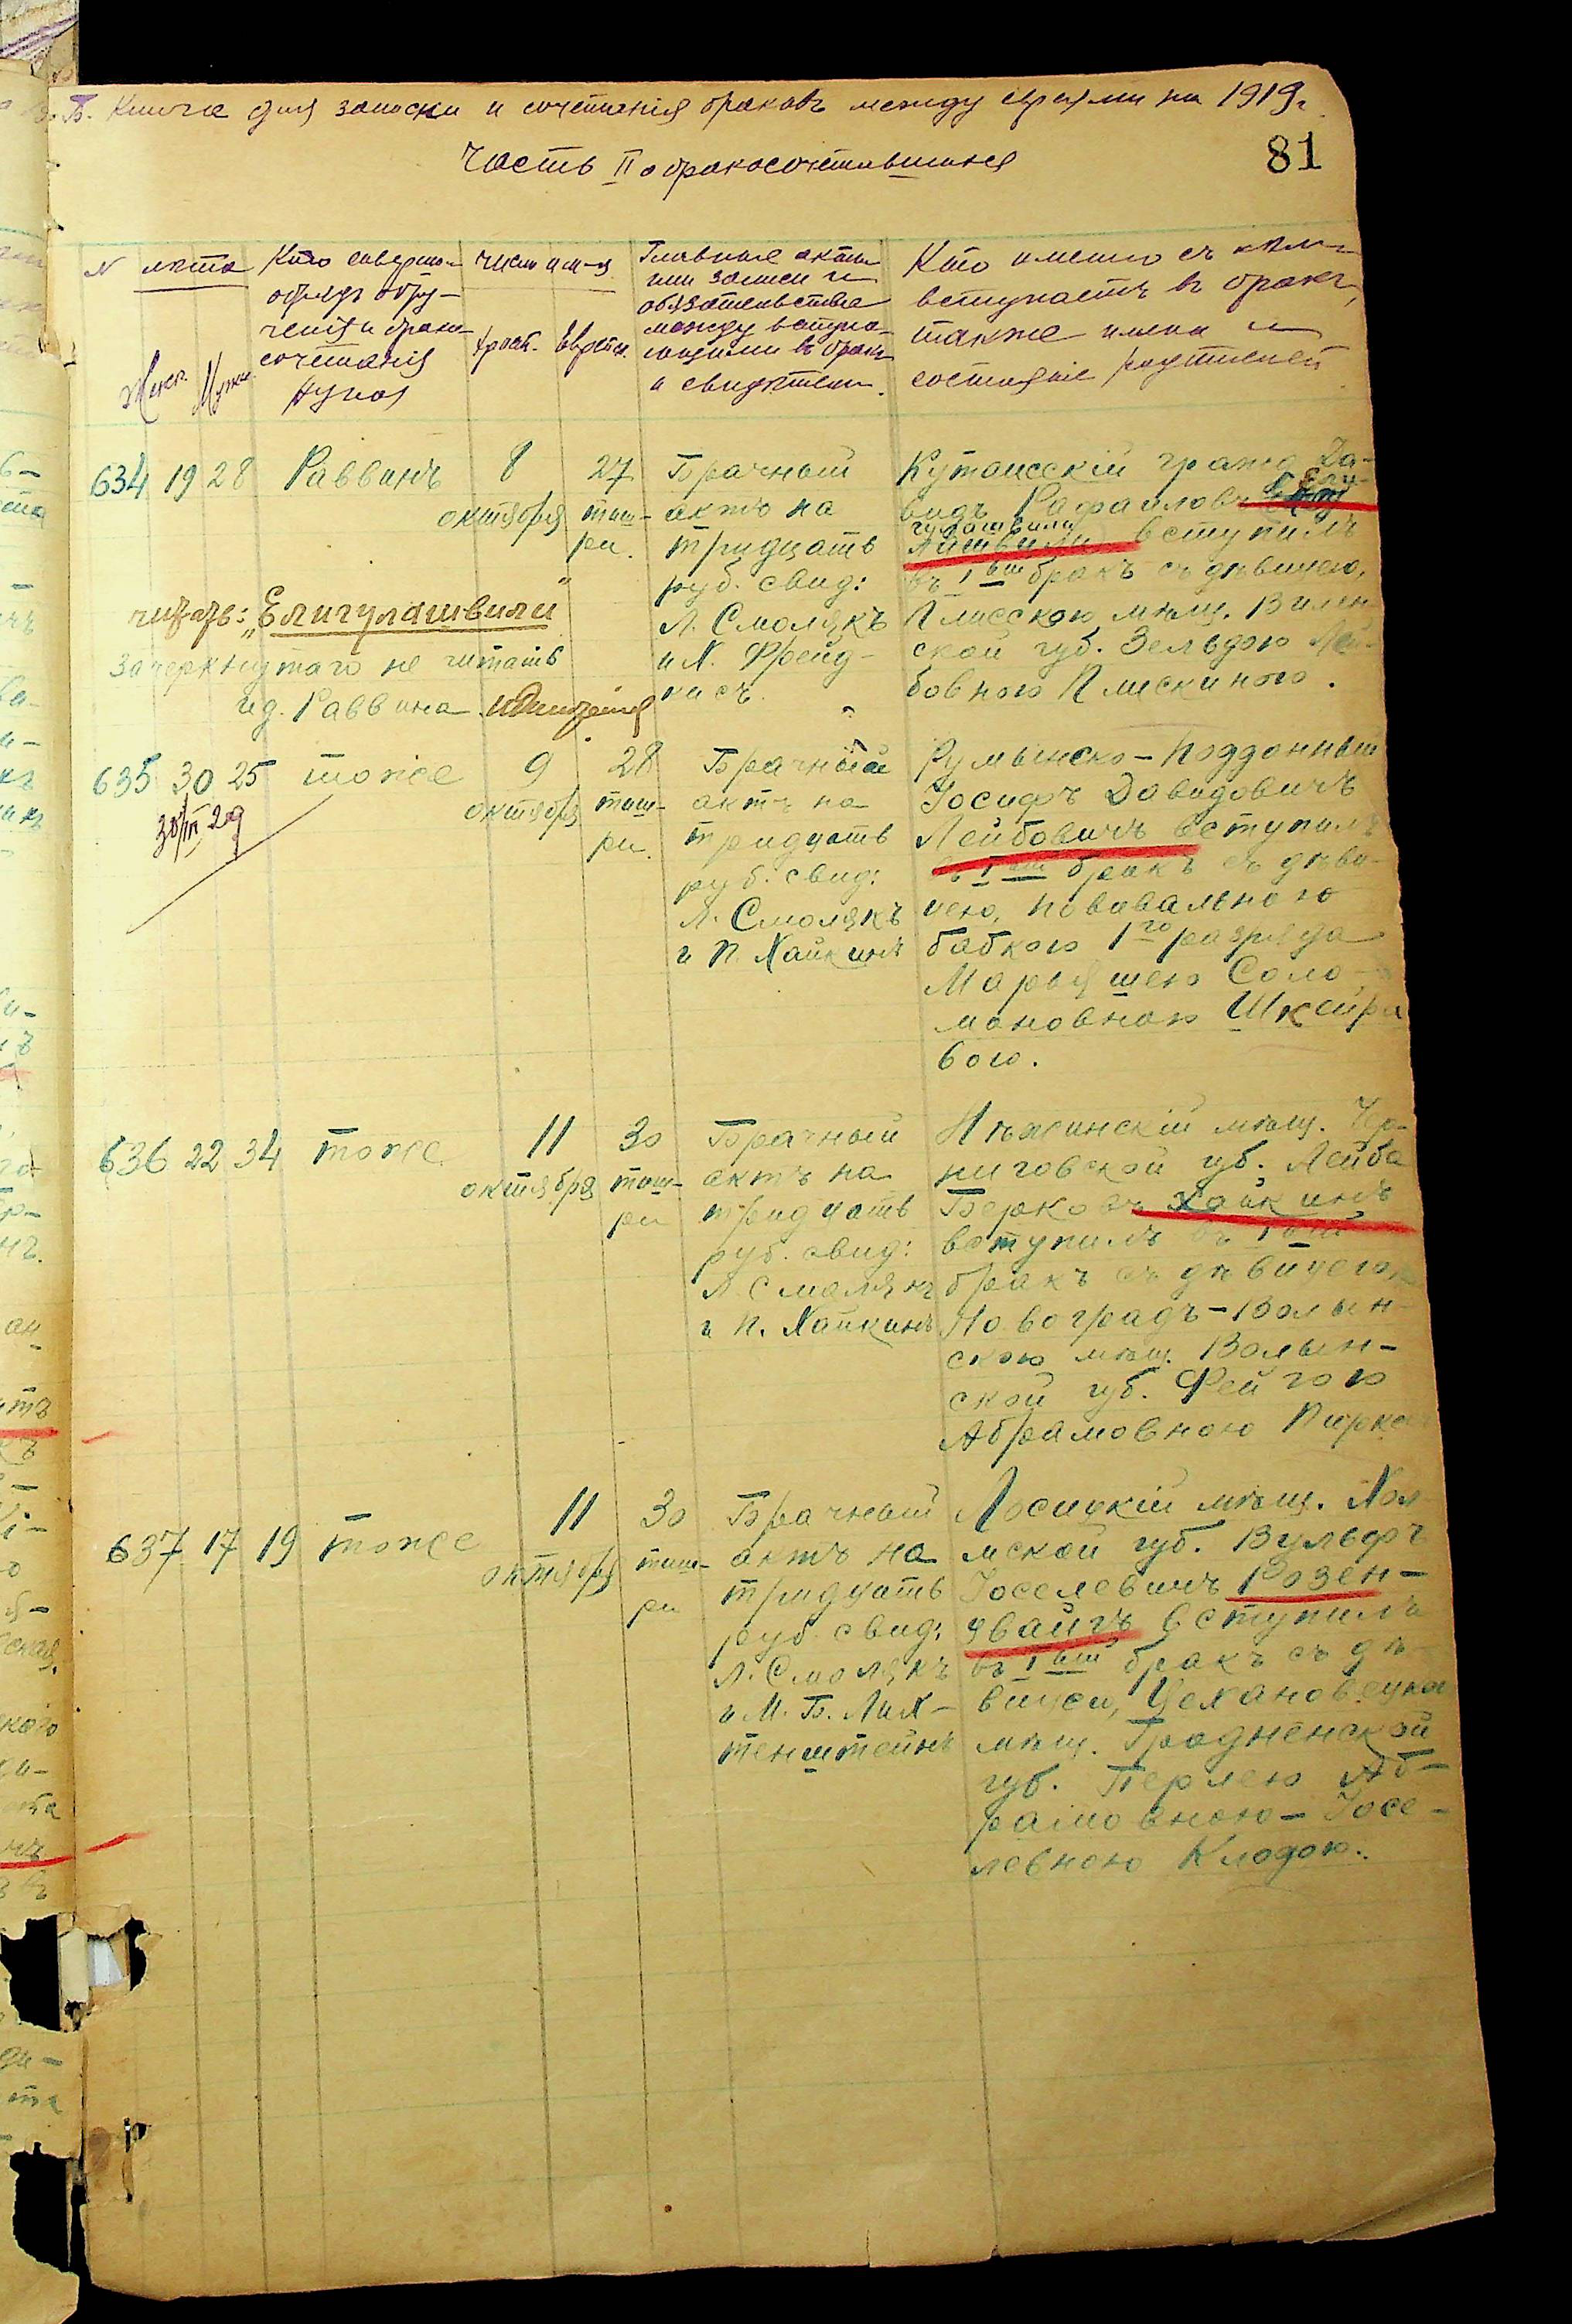 Б. Книга для записки и сочетанія браковъ между евреями на 1919 г.
81
Часть II о бракосочетавшихся
N лѣта
Женс. Мужс.
Кто соверша-
обрядъ обру-
ченія и брако-
сочетанія
числ и м-ц
христ. Еврейск.
Главные акты
или записи и
обязательства
между вступа-
ющими въ бракъ
и свидѣтели.
Кто именно съ кѣмъ
вступаетъ въ бракъ,
также имена и
состояніе родителей
634 19 28 Раввинъ
8
октября
27
тиш-
ри.
Брачный
актъ на
тридцать
руб. свид:
Л. Смолякъ
и Х. Фрейд-
кисъ.
Кутаисскій гражд. Да-
видъ Рафаиловъ Ели-
гулашвили
вступилъ
въ 1ый бракъ съ дѣвицею,
Плисскою мѣщ. Вилен-
ской губ. Зельдою Лей-
бовною Плискиною.
читать: „Елигулашвили"
Зачеркнутаго не читать
и д. Раввина
635 30 25 тоже
30/III 29
9
октября
28
тиш-
ри.
Брачный
актъ на
тридцать
руб. свид:
Л. Смолякъ
и П. Хайкинъ
Румынско-подданный
Іосифъ Давидовичъ
Лейбовичъ вступилъ
въ 1ый бракъ съ дѣви-
цею, повивальною
бабкою 1го разряда
Марьяшею Соло-
моновною Шкляр
вою.
636 22 34 тоже
11
октября
30
тиш-
ри
Брачный
актъ на
тридцать
руб. свид:
Л. Смолякъ
и П. Хайкинъ
Нѣжинскій мѣщ. Чер-
ниговской губ. Лейба
Берковъ Хайкинъ
вступилъ въ 1ый
бракъ съ дѣвицею
Новоградъ-Волын-
скою мѣщ. Волын-
ской губ. Фейгою
Абрамовною
637 17 19 тоже
11
октября
30
тиш-
ри
Брачный
актъ на
тридцать
руб. свид:
Л. Смолякъ
и М. Б. Лих-
тенштейнъ
Лосицкій мѣщ. Хол-
мской губ. Вульфъ
Іоселевичъ Розен-
цвайгъ вступилъ
въ 1ый бракъ съ дѣ-
вицею, Цехановецкою
мѣщ. Гродненской
губ. Перлею Аб-
рамовною-Іосе-
левною Клодою.